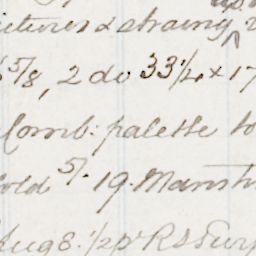 ictures & straing
5/8, 2 do 33 1/4 x 17
Comb: palette to
old 5/. 19. Mansh
Aug 8. 1/2 pt R S Surp